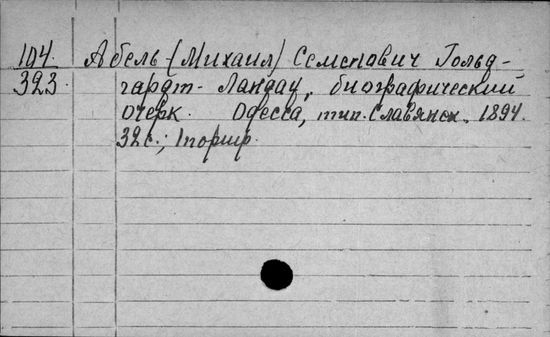 104. Абель (Михаил) Семенович Гольд-
323. гардт-Ландау, биографический
очерк. Одесса, тип. Славянск. 1894.
32 с.; 1 портр.